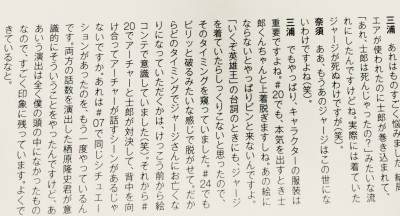 三浦　あれはものすごく悩みました！　結局
エアが使われたのに士郎が巻き込まれて、
「あれ、士郎は死んじゃったの？」みたいな流
れにしたんですけどね。実際には着ていた
ジャージが死ぬわけですが（笑）。
奈須　ああ、もうあのジャージはこの世にな
いわけですよね（笑）。
三浦　でもやっぱり、キャラクターの服装は
重要ですよね。＃20でも、本気を出すとき士
郎くんちゃんと上着脱ぎますしね。あの絵に
ならないとやっぱりピンと来ないんですよ。
「いくぞ英雄王」の台詞のときにも、ジャージ
を着ていたらしっくりこないと思ったので、
そのタイミングを窺っていました。＃24でも
ビリッと破るみたいな感じで脱がせて。だか
らどのタイミングでジャージさんにお亡くな
りになっていただくかは、けっこう前から絵
コンテで意識していました（笑）。それから＃
20でアーチャーと士郎が対決して、背中を向
け合ってアーチャーが話すシーンがあるじゃ
ないですか。あれは＃07で同じシチュエー
ションがあったのを、もう一度やっているん
です。両方の話数を演出した栖原隆史君が意
識的にそういうことをやったんですけど、あ
あいう演出は全く僕の頭の中になかったもの
なので、すごく印象に残っています。よくで
きているなと。